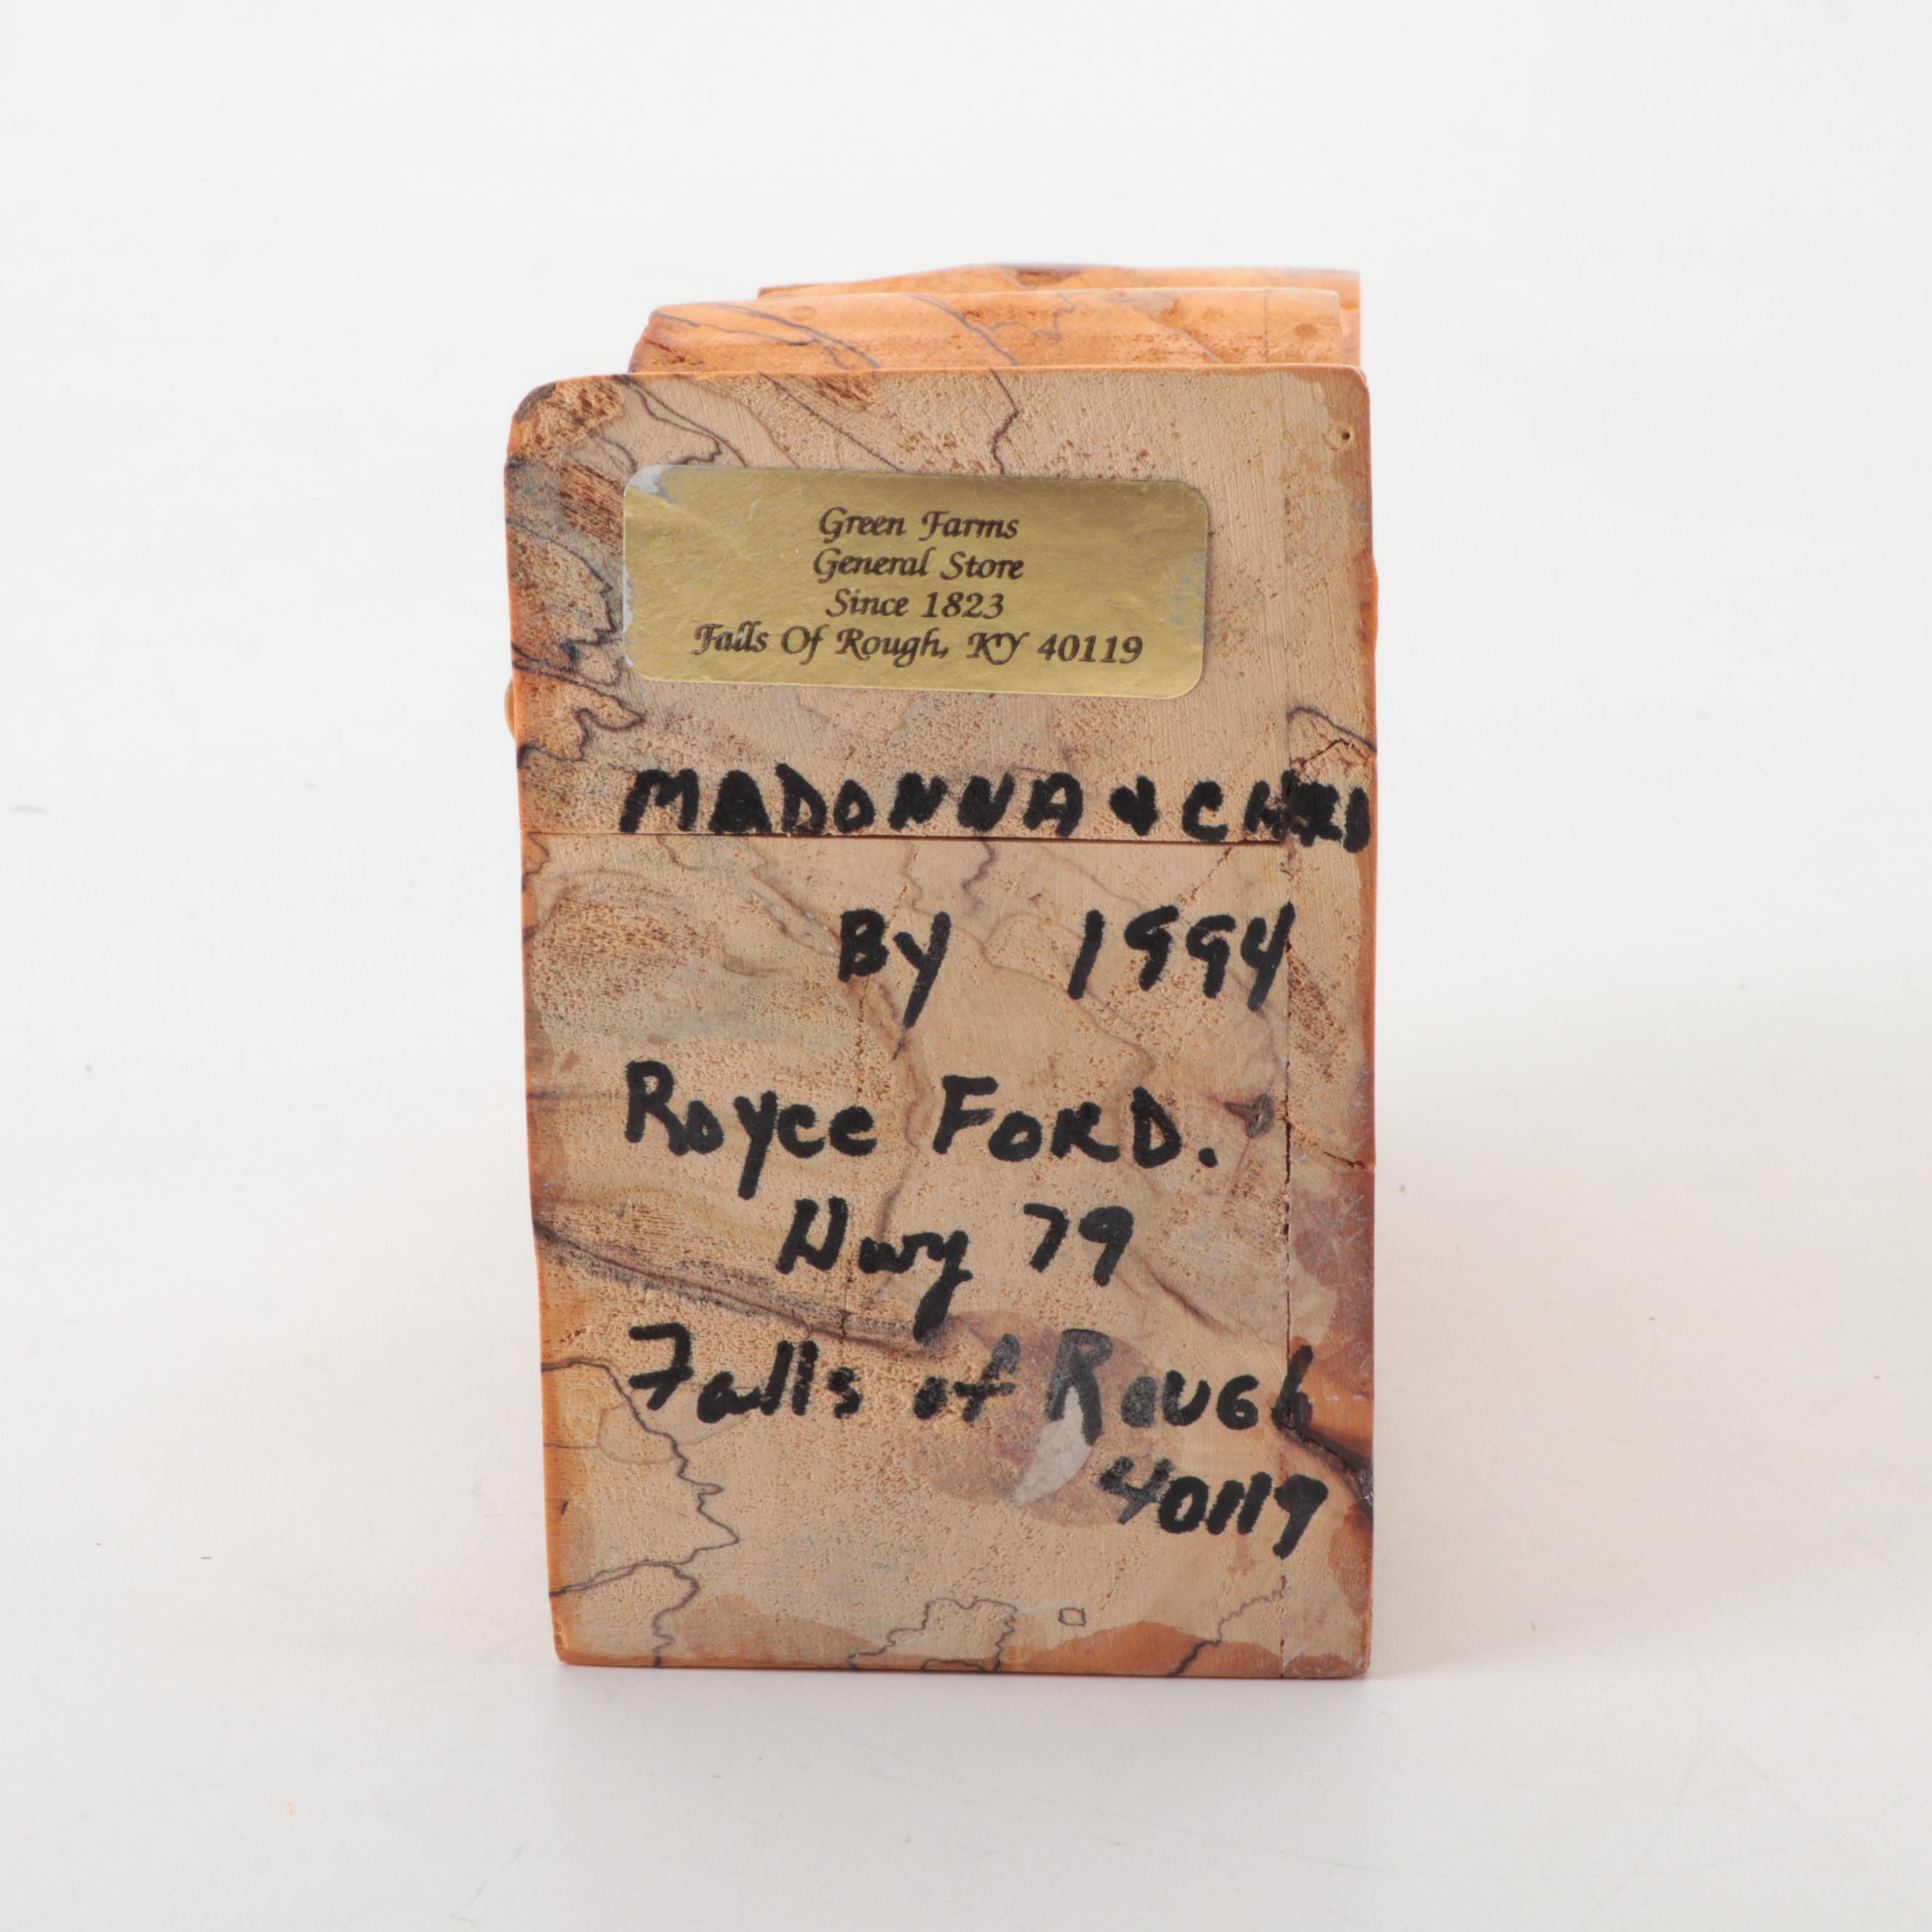 Green Farms
General Store
Since 1823
Falls Of Rough, KY 40119
MADONNA &
By 1994
Royce FORD.
Hwy 79
Falls of Rough
40119